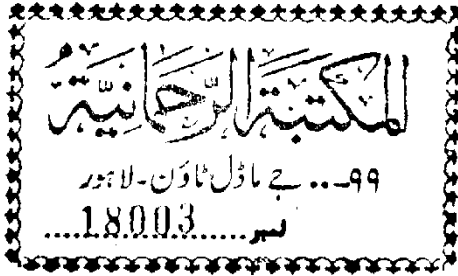 المكتبة الرحمانية
۹۹... جے ماڈل ٹاؤن۔ لاہور
نمبر.....18003....